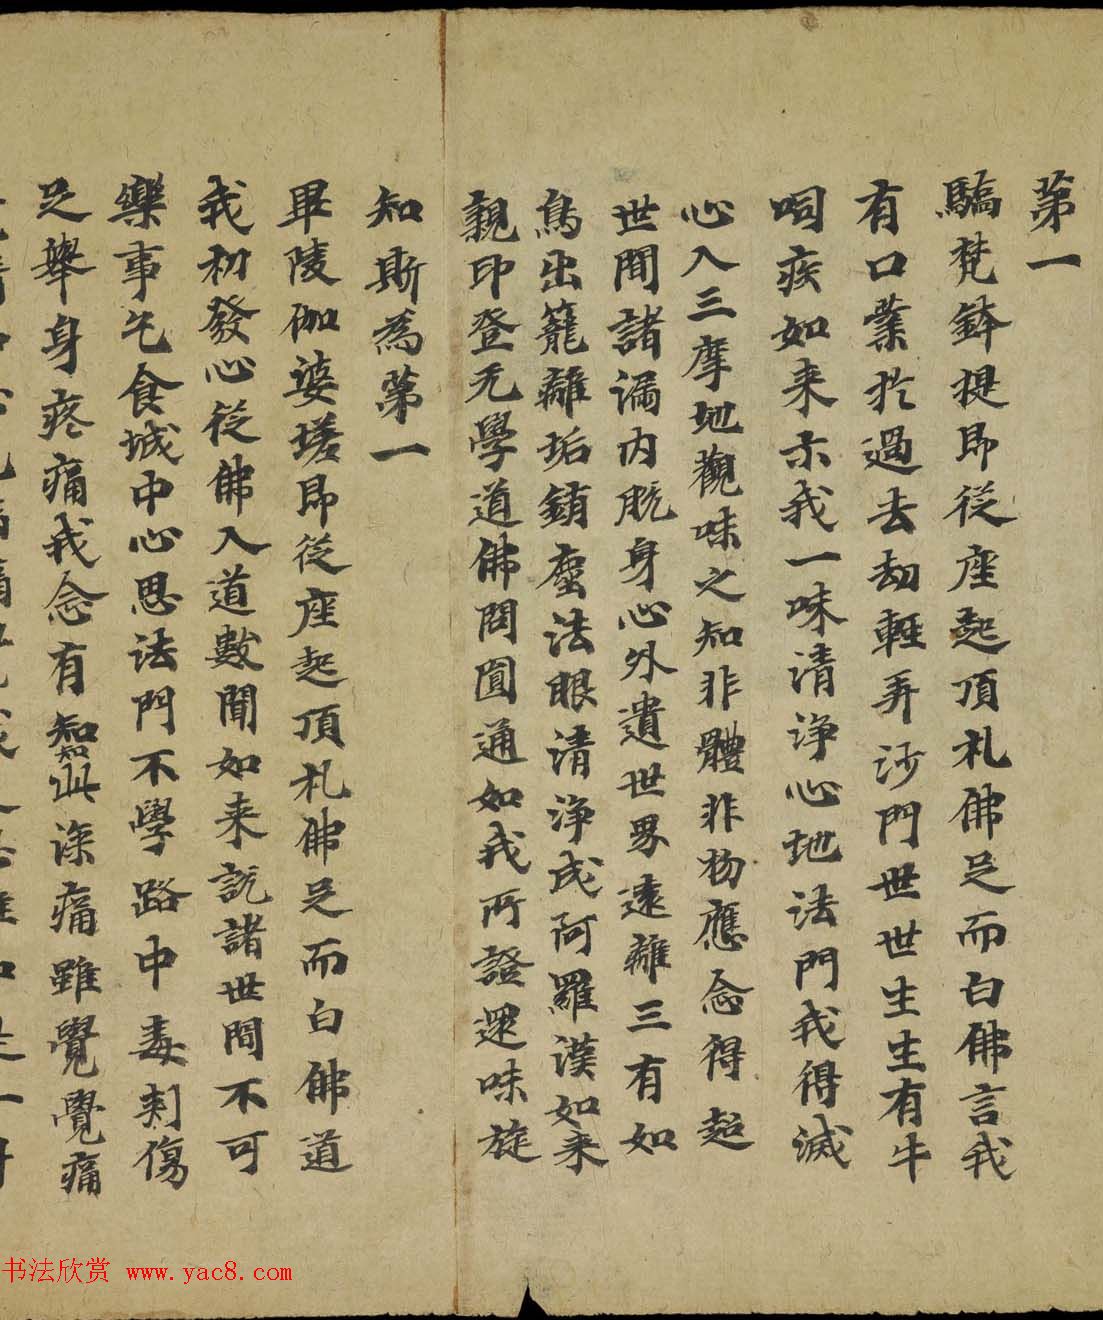 第一
驕梵鉢提即從座起頂札佛足而白佛言我
有口業於過去劫輕弄沙門世世生生有牛
呞疾如来示我一味清淨心地法門我得滅
心入三摩地觀味之知非體非物應念得超
世間諸漏内脫身心外遺世界遠離三有如
鳥出籠離垢銷塵法眼清淨成阿羅漢如来
親印登无學道佛問圓通如我所證還味旋
知斯為第一
畢陵伽婆蹉即從座起頂札佛足而白佛道
我初發心從佛入道數聞如来說諸世間不可
樂事乞食城中心思法門不學路中毒刺傷
足舉身疼痛我念有知知此深痛雖覺覺痛
书法欣赏 www.yac8.com